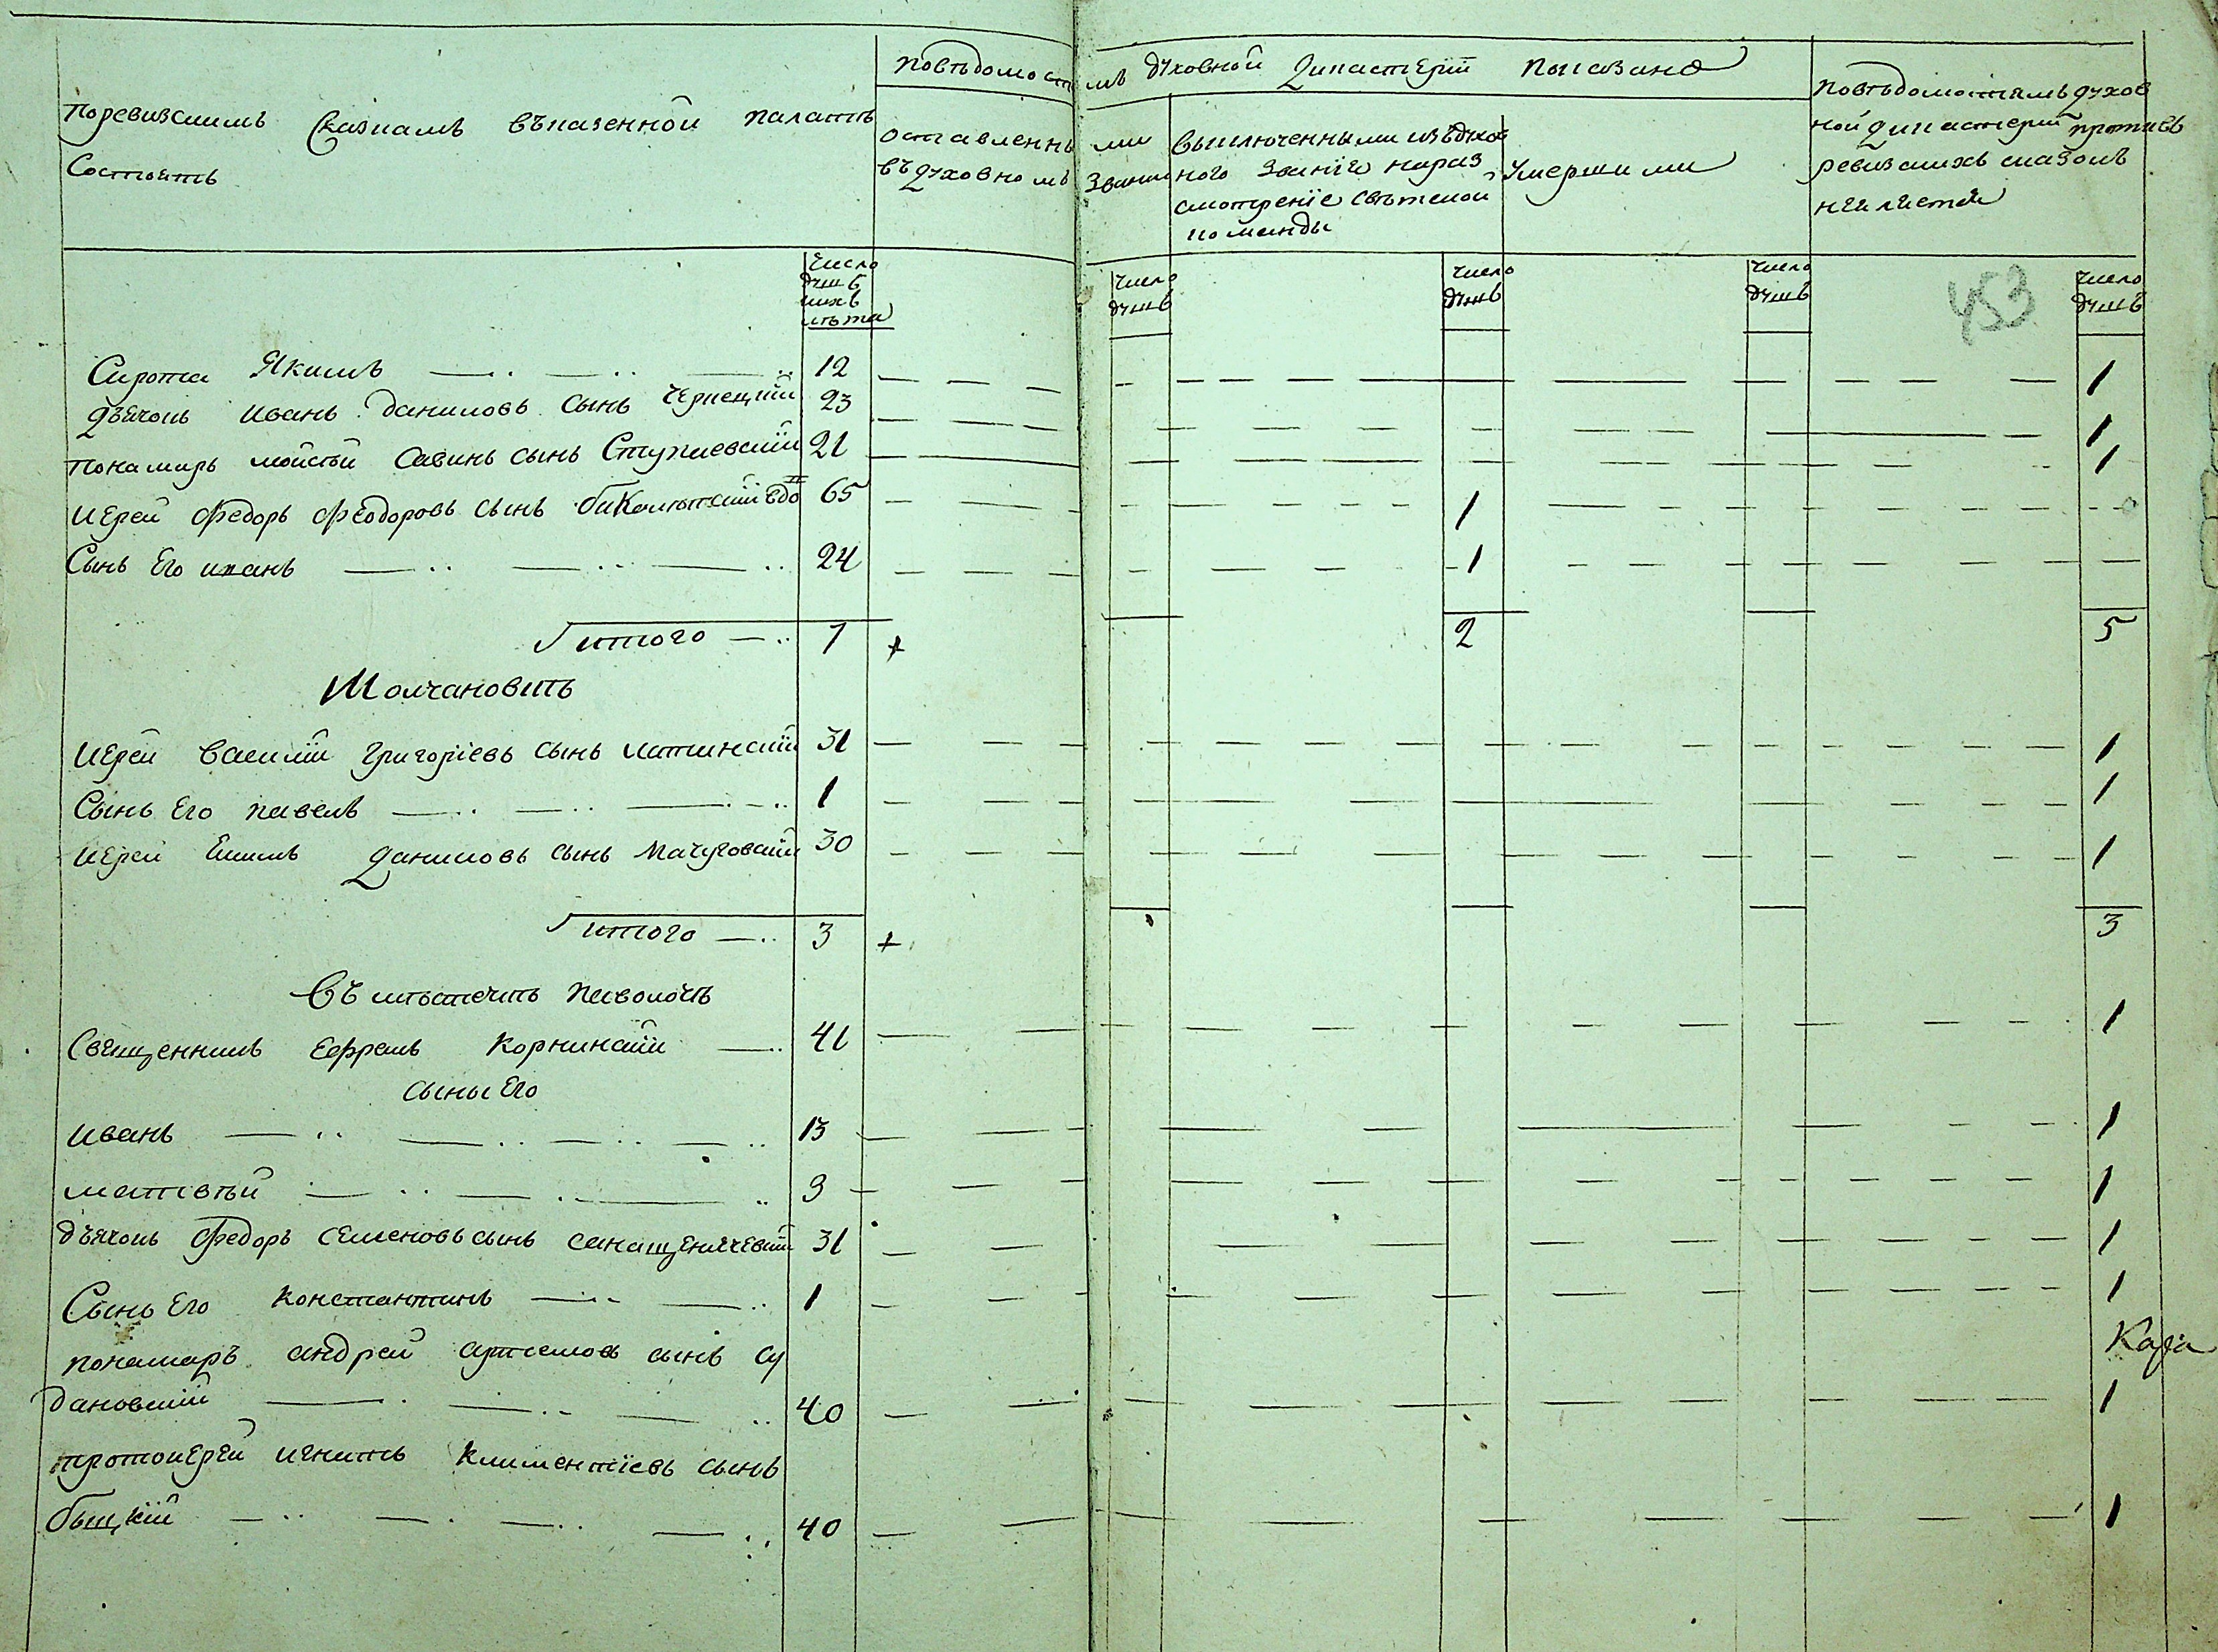 Поревизскимъ Сказкамъ въказенной палатѣ
Состоитъ
повѣдомостямъ духовной Дикастерiи показано
оставленными
въ духовномъ званiи
выключенными изъ духов
ного званiя нараз
смотренiе свѣтской
команды
умершими
повѣдомостямъ духов
ной дикастерiи противъ
ревизскихъ сказокъ
неимеется
453
число
душъ
ихъ
лѣта
число
душъ
число
душъ
число
душъ
число
душъ
Сирота Якимъ — — — 12 1
дьячокъ иванъ даниловъ сынъ чернецкiй 23 1
понамарь мойсѣй Савинъ сынъ 21 1
иерей федоръ феодоровъ сынъ 65 1
Сынъ Его иванъ — — — 24 1
итого — 7 + 2 5
Молчановкѣ
иерей василiй григорiевъ сынъ 31 1
Сынъ Его павелъ — — — 1 1
иерей даниловъ сынъ Мачуговскiй 30 1
итого — 3 + 3
Въ мѣстечкѣ паволочѣ
Священникъ ефремъ Корнинскiй — 41 1
сыны Его
иванъ — — — — 13 1
матвѣй — — — 9 1
дьячокъ федоръ семеновъ сынъ 31 1
Сынъ Его константинъ — — 1 1
понамаръ андрей артемовъ сынъ су
дановскiй — — — 40 1
протоиерей игнатъ климентiевъ сынъ
быцкiй — — — — 40 1